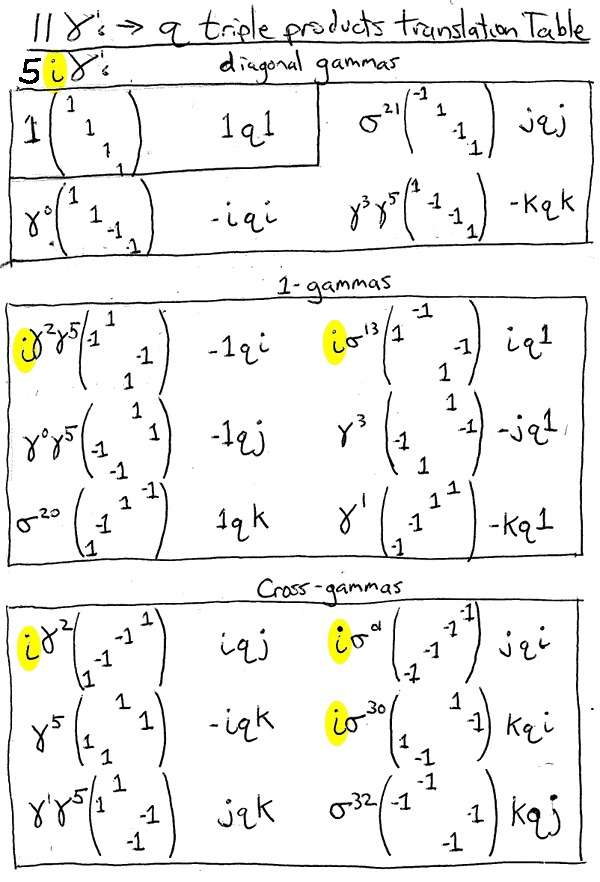 11 γⁱₛ → q triple products translation Table
5 i γⁱₛ diagonal gammas
1 ( 1 1 1 1 ) 1q1 σ²¹ ( -1 1 -1 1 ) jqj
γ⁰ ( 1 1 -1 -1 ) -iqi γ³γ⁵ ( 1 -1 -1 1 ) -kqk
1-gammas
iγ²γ⁵ ( 1 -1 -1 1 ) -1qi iσ¹³ ( -1 1 -1 1 ) iq1
γ⁰γ⁵ ( 1 1 -1 -1 ) -1qj γ³ ( 1 -1 -1 1 ) -jq1
σ²⁰ ( -1 1 -1 1 ) 1qk γ¹ ( 1 1 -1 -1 ) -kq1
Cross-gammas
iγ² ( 1 -1 -1 1 ) iqj iσ ( -1 -1 -1 -1 ) jqi
γ⁵ ( 1 1 1 1 ) -iqk iσ³⁰ ( 1 -1 1 -1 ) kqi
γ¹γ⁵ ( 1 1 -1 -1 ) jqk σ³² ( -1 -1 -1 -1 ) kqj